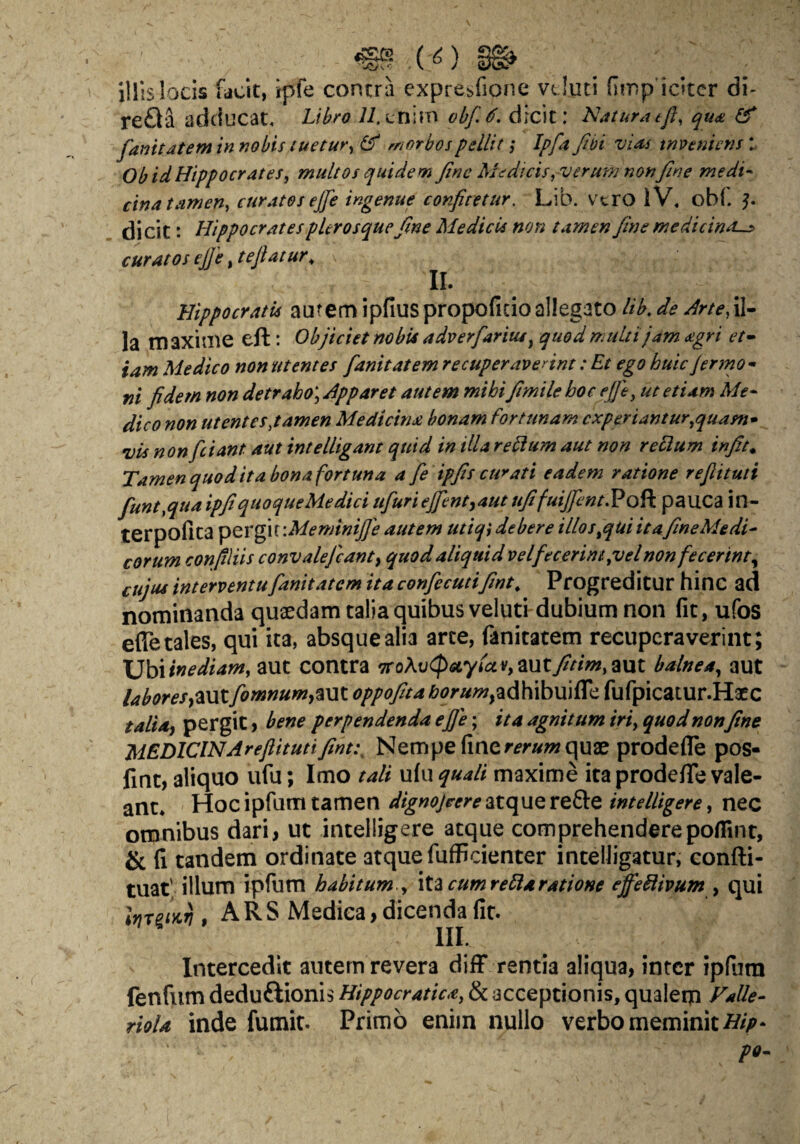 (6)
illis locis facit, ipſe contra expresſione veluti ſimpliciter di-
recta adducat. Libro II. enim obſ. 6. dicit: Natura eſt, quæ &
ſanitatem in nobis tuetur, & morbos pellit; Ipſa ſibi vias inveniens:
Ob id Hippocrates, multos quidem ſine Medicis, verum non ſine medi-
cina tamen, curatos eſſe ingenue confitetur. Lib. vero IV. obſ. 3.
dicit: Hippocrates plerosque ſine Medicis non tamen ſine medicina
curatos eſſe, teſtatur.
II.
Hippocratis autem ipſius propoſitio allegato lib. de Arte, il-
la maxime eſt: Objiciet nobis adverſarius, quod multi jam ægri et-
iam Medico non utentes ſanitatem recuperaverint: Et ego huic ſermo-
ni fidem non detraho; Apparet autem mihi ſimile hoc eſſe, ut etiam Me-
dico non utentes, tamen Medicinæ bonam fortunam experiantur, quam-
vis non ſciant aut intelligant quid in illa rectum aut non rectum inſit.
Tamen quod ita bona fortuna a ſe ipſis curati eadem ratione reſtituti
ſunt, qua ipſi quoque Medici uſuri eſſent, aut uſi fuiſſent. Poſt pauca in-
terpoſita pergit: Meminiſſe autem utiq; debere illos, qui ita ſine Medi-
corum conſiliis convaleſcant, quod aliquid vel fecerint, vel non fecerint,
cujus interventu ſanitatem ita conſecuti ſint. Progreditur hinc ad
nominanda quædam talia quibus veluti dubium non ſit, uſos
eſſe tales, qui ita, absque alia arte, ſanitatem recuperaverint;
Ubi inediam, aut contra πολυφαγίαν, aut ſitim, aut balnea, aut
labores, aut ſomnum, aut oppoſita horum, adhibuiſſe ſuſpicatur. Hæc
talia, pergit, bene perpendenda eſſe; ita agnitum iri, quod non ſine
MEDICINA reſtituti ſint: Nempe ſine rerum quæ prodeſſe pos-
ſint, aliquo uſu; Imo tali uſu quali maximè ita prodeſſe vale-
ant. Hoc ipſum tamen dignoſcere atque recte intelligere, nec
omnibus dari, ut intelligere atque comprehendere poſſint,
& ſi tandem ordinate atque ſufficienter intelligatur, conſti-
tuat illum ipſum habitum, ita cum recta ratione effectivum, qui
ἰητρικὴ, ARS Medica, dicenda ſit.
III.
Intercedit autem revera diff rentia aliqua, inter ipſum
ſenſum deductionis Hippocraticæ, & acceptionis, qualem Valle-
riola inde ſumit. Primò enim nullo verbo meminit Hip-
po-